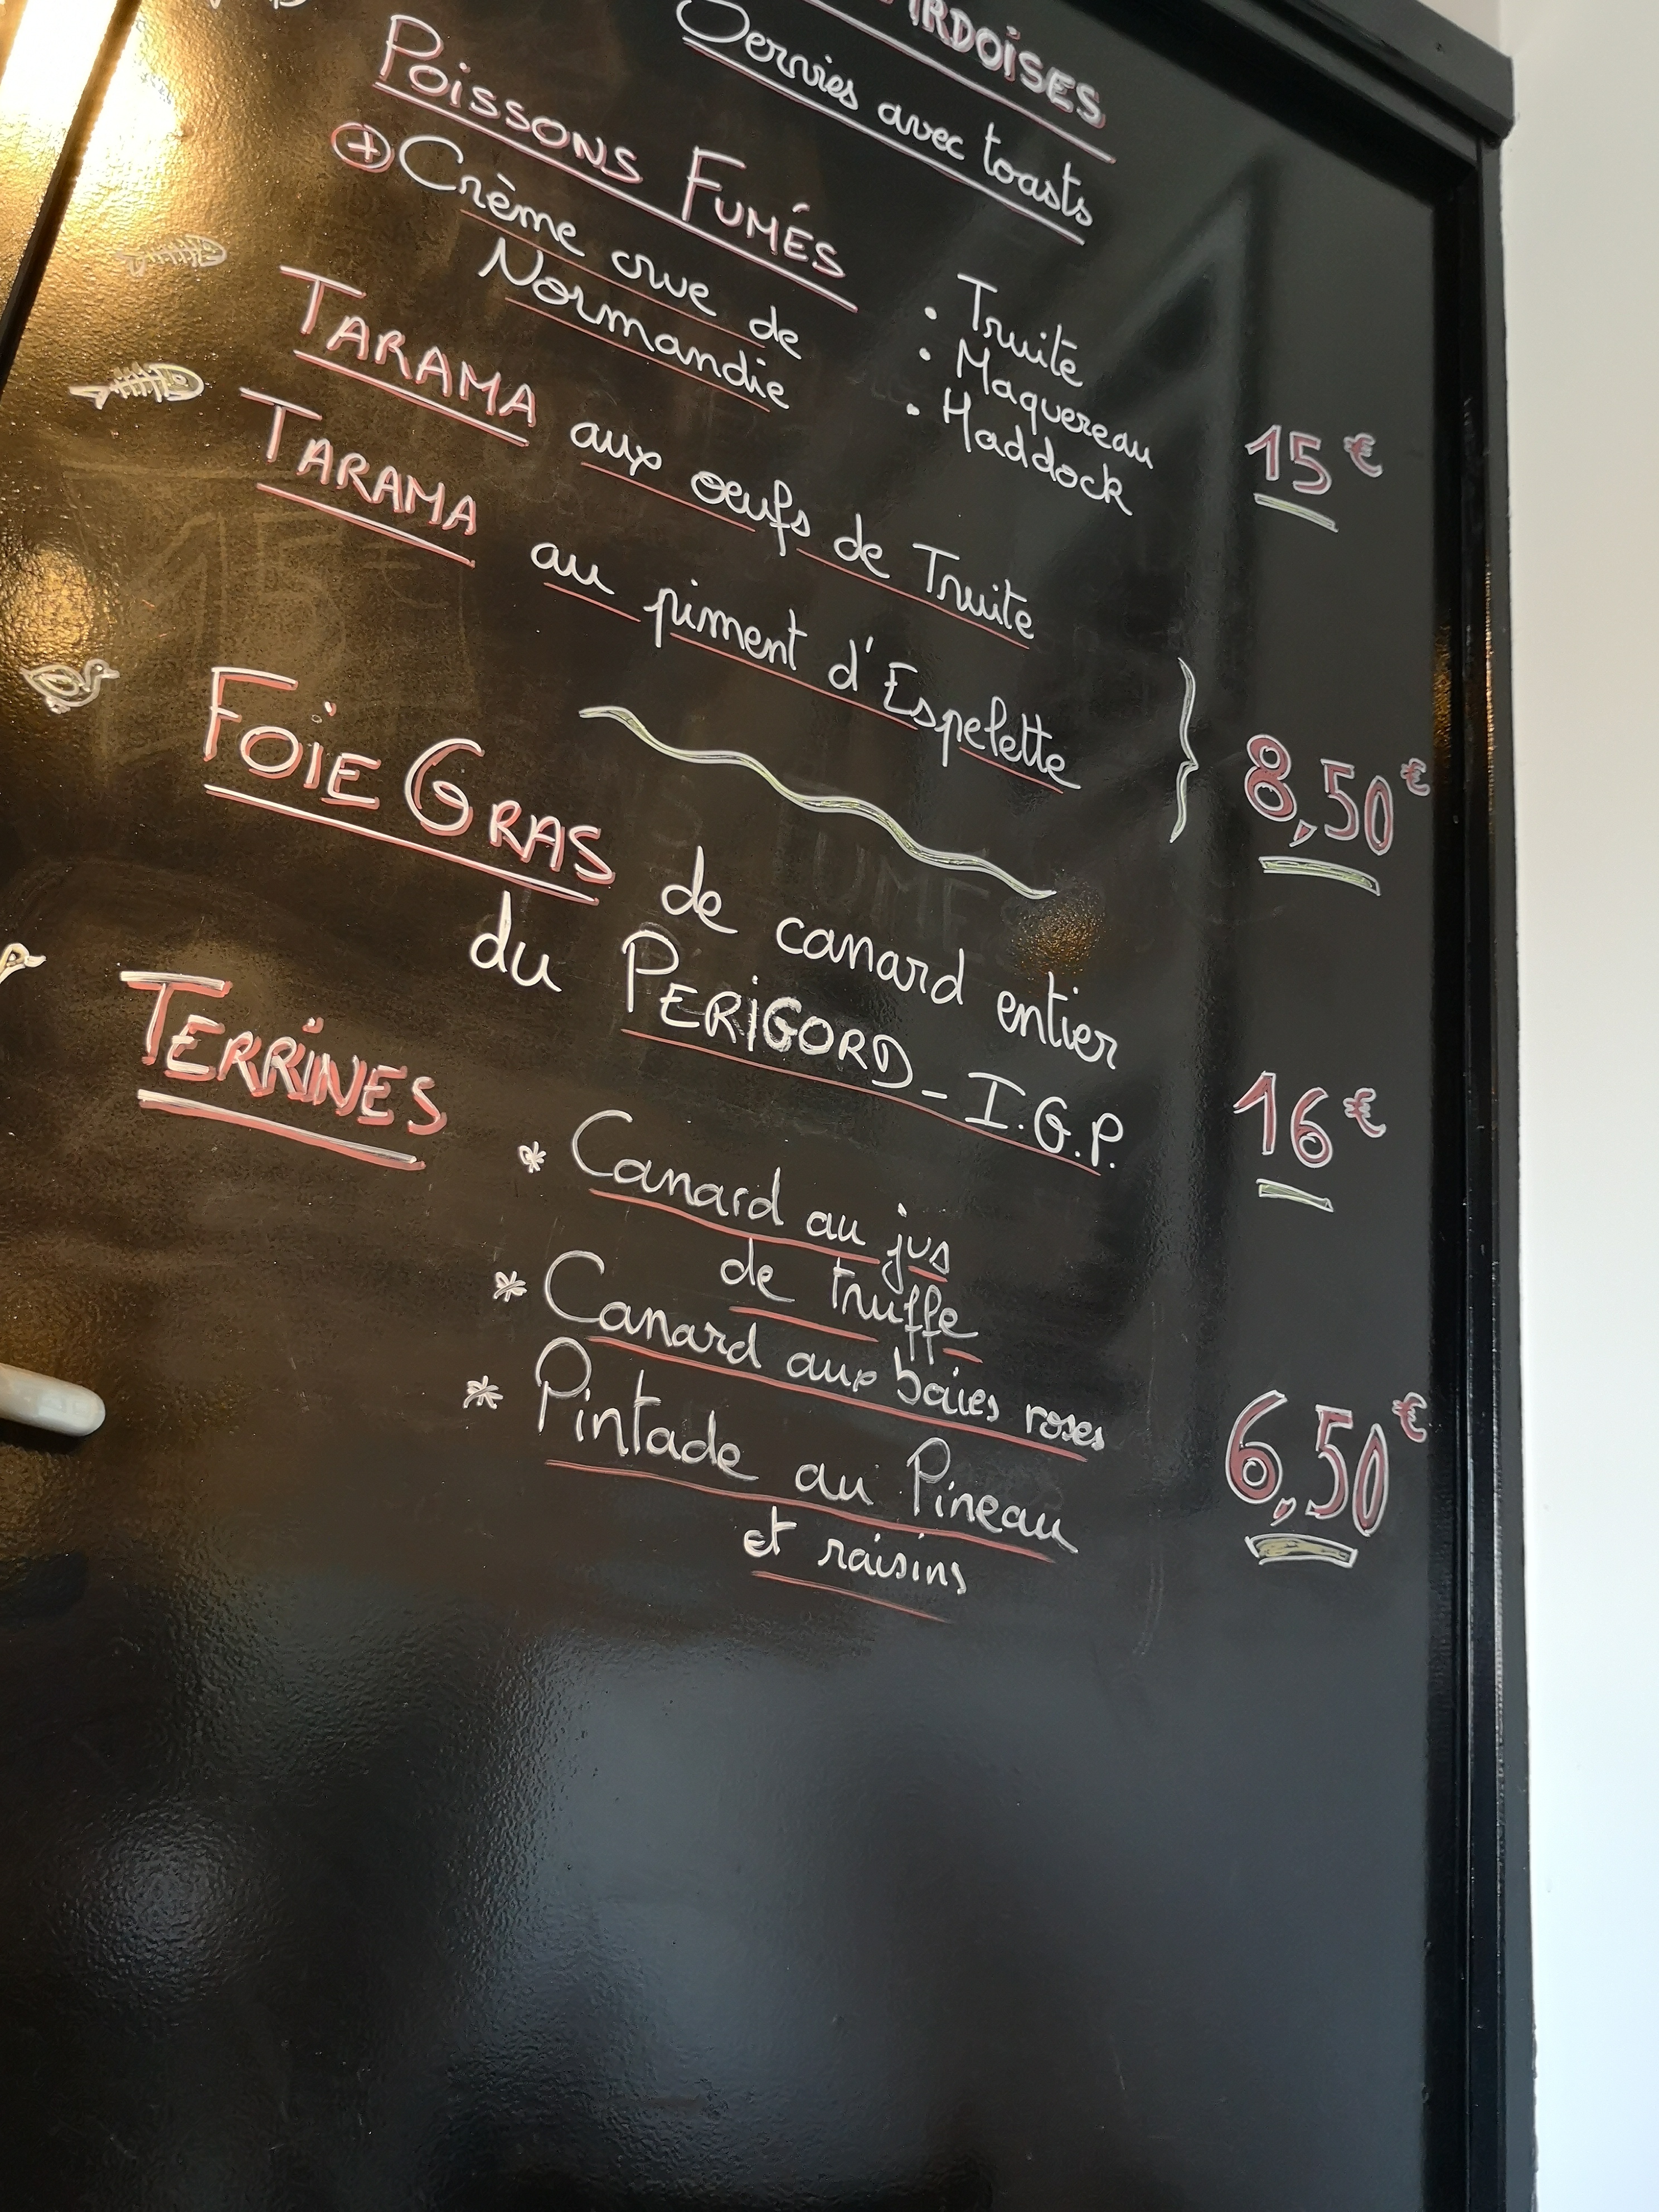 ARDOISES
Servies avec toasts
POISSONS FUMÉS
+ Crème crue de
Normandie
• Truite
• Maquereau
• Haddock
15 €
TARAMA aux œufs de Truite
TARAMA au piment d'Espelette
8,50 €
FOIE GRAS de canard entier
du PERIGORD - I.G.P.
16 €
TERRINES
* Canard au jus
de truffe
* Canard aux baies roses
* Pintade au Pineau
et raisins
6,50 €